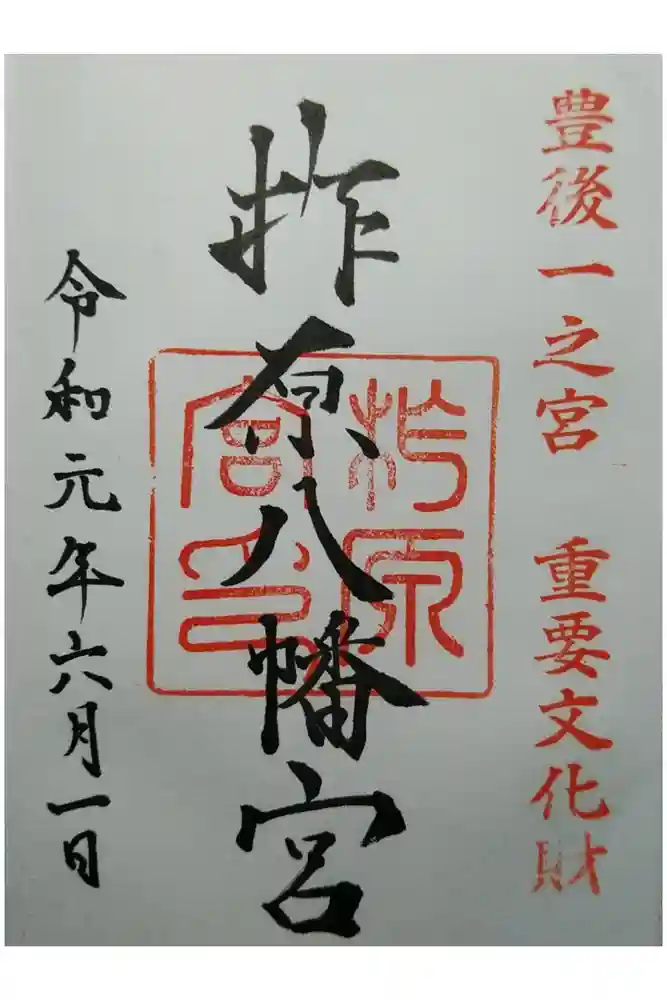 豊後一之宮 重要文化財
柞原八幡宮
柞原宮印
令和元年六月一日